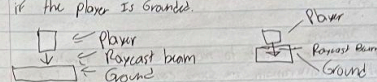 if the player Is Grounded.
Player
Raycast beam
Ground
Player
Raycast Beam
Ground